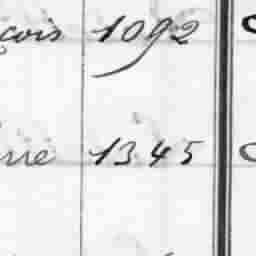 çois 1092
rre 1345